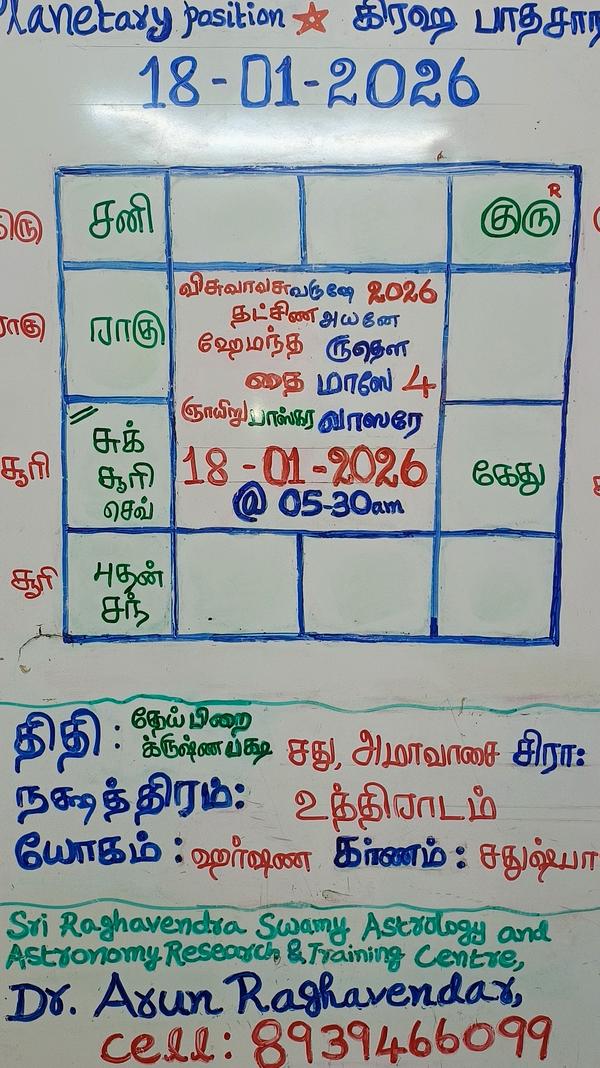 Planetary position ★ கிரஹ பாதசார
18-01-2026
சனி
குரு R
ராகு
விசுவாவசுவருஷே 2026
தட்சிண அயனே
ஹேமந்த ருதௌ
தை மாஸே 4
ஞாயிறு பாஸ்கர வாஸரே
18-01-2026
@ 05-30am
சுக்
சூரி
செவ்
கேது
புதன்
சந்
ராகு
சூரி
சூரி
திதி : தேய்பிறை
க்ருஷ்ணபக்ஷ சது, அமாவாசை சிரா:
நக்ஷத்திரம்: உத்திராடம்
யோகம் : ஹர்ஷண கர்ணம் : சதுஷ்பா
Sri Raghavendra Swamy Astrology and
Astronomy Research & Training Centre,
Dr. Arun Raghavendar,
cell: 8939466099